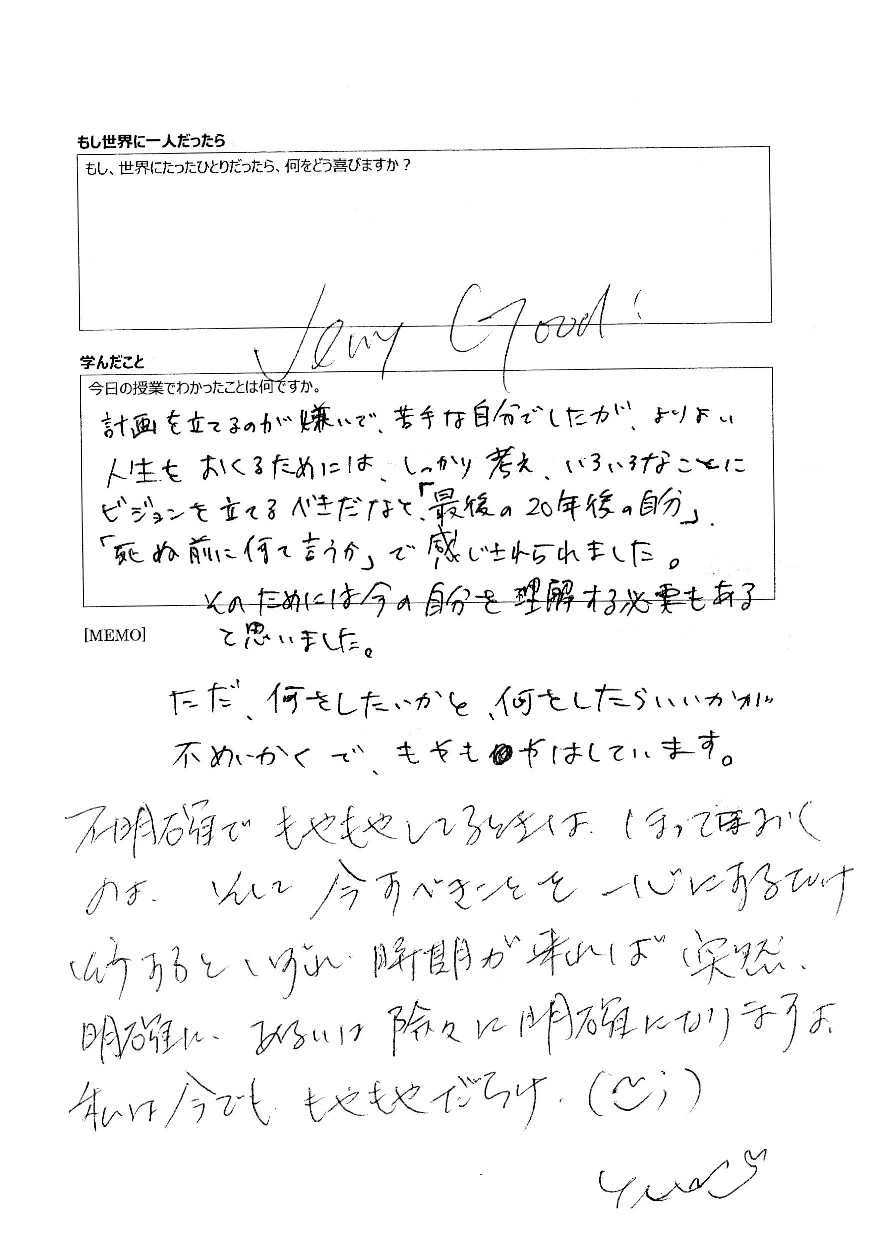 もし世界に一人だったら
もし、世界にたったひとりだったら、何をどう喜びますか？
Very Good!
学んだこと
今日の授業でわかったことは何ですか。
計画を立てるのが嫌いで、苦手な自分でしたが、よりよい
人生をおくるためには、しっかり考え、いろいろなことに
ビジョンを立てるべきだなと、「最後の20年後の自分」、
「死ぬ前に何て言うか」で感じさせられました。
そのためには今の自分を理解する必要もある
[MEMO]
と思いました。
ただ、何をしたいかと、何をしたらいいかが
不めいかくで、もやもやはしています。
不明確でもやもやしてるときは、ほって おく
のよ。そして今すべきことを一心にあるだけ
すると いずれ 時期が来れば 突然、
明確に、あるいは除々に明確になりますよ。
私は今でも もやもやだらけ。